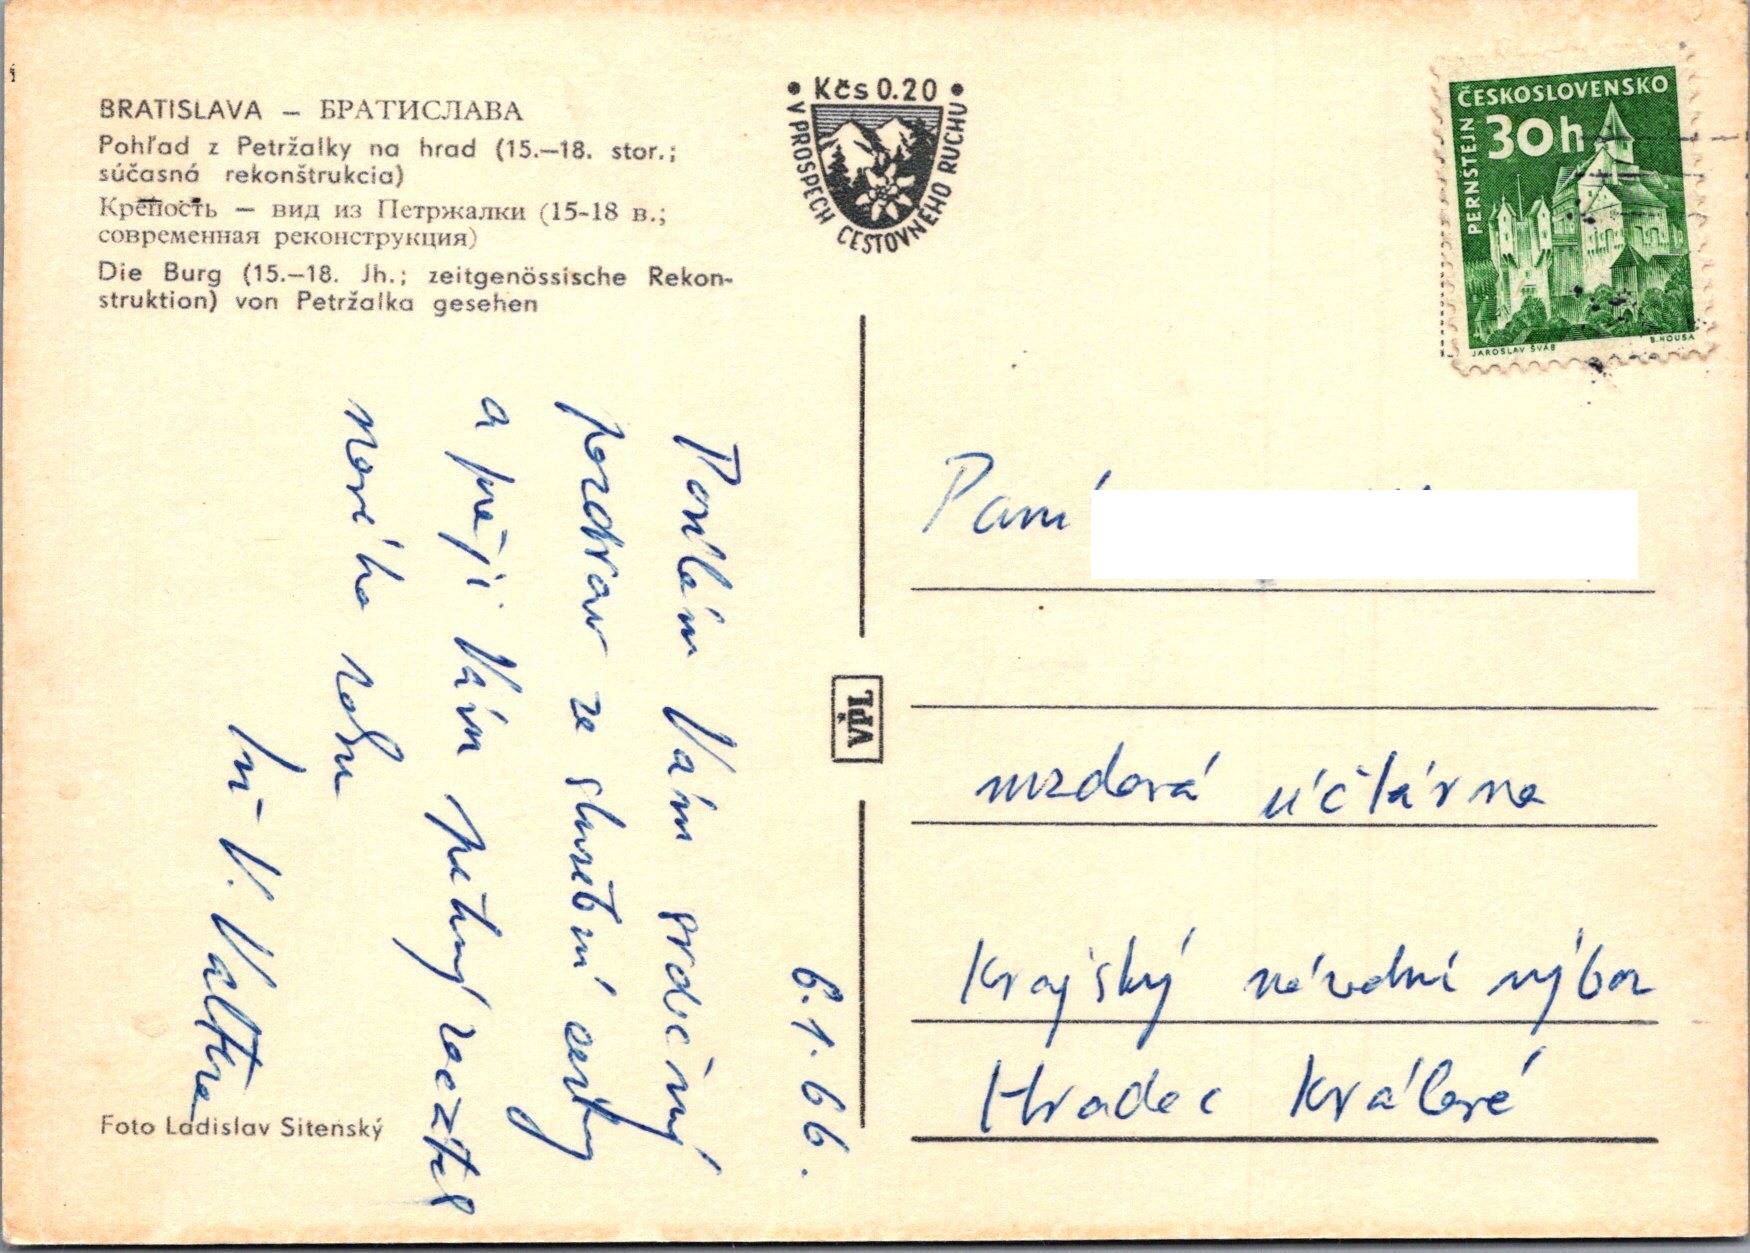 BRATISLAVA – БРАТИСЛАВА
Pohľad z Petržalky na hrad (15.–18. stor.;
súčasná rekonštrukcia)
Крепость — вид из Петржалки (15-18 в.;
современная реконструкция)
Die Burg (15.–18. Jh.; zeitgenössische Rekon-
struktion) von Petržalka gesehen
• Kčs 0.20 •
V PROSPECH CESTOVNÉHO RUCHU
ČESKOSLOVENSKO
30h
PERNŠTEJN
JAROSLAV ŠVÁB
B. HOUSA
6.1.66.
Posílám Vám srdečný
pozdrav ze služební cesty
a přeji Vám pěkný začátek
nového roku
V. Valtera
VPL
Paní
mzdová účtárna
Krajský národní výbor
Hradec Králové
Foto Ladislav Sitenský